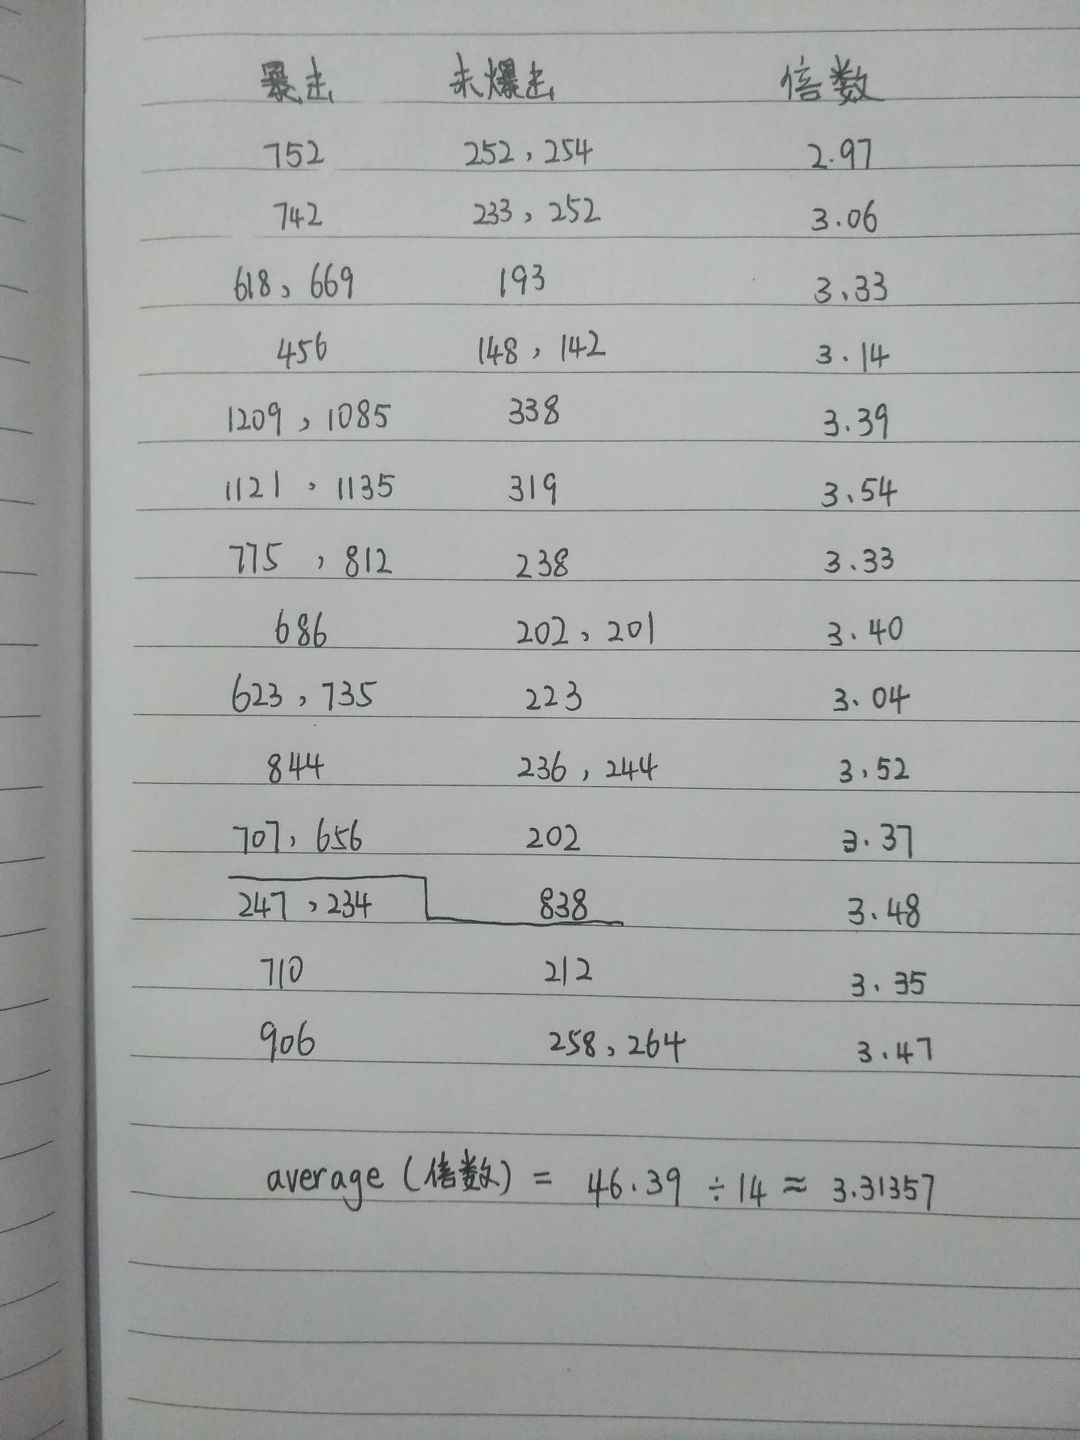 暴击 未爆击 倍数
752 252,254 2.97
742 233,252 3.06
618、669 193 3.33
456 148,142 3.14
1209,1085 338 3.39
1121,1135 319 3.54
775,812 238 3.33
686 202,201 3.40
623,735 223 3.04
844 236,244 3.52
707,656 202 3.37
247,234 838 3.48
710 212 3.35
906 258,264 3.47
average(倍数)= 46.39 ÷14≈ 3.31357